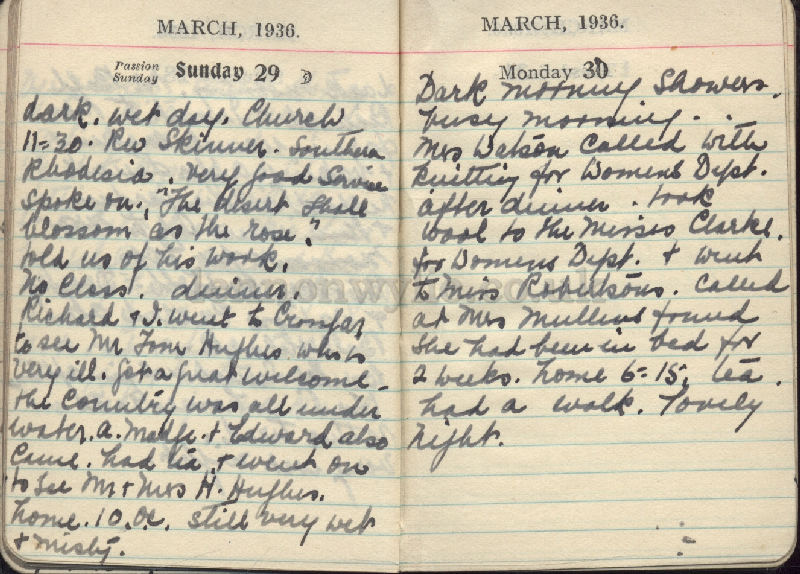 MARCH, 1936.
Passion
Sunday
Sunday 29
dark. wet day. Church
11=30. Rev Skinner. Southern
Rhodesia. Very good Service
Spoke on., "The desert Shall
blossom as the rose".
told us of his work.
No Class. dinner.
Richard & I. went to Crossgar
to see Mr Tom Hughes who is
very ill. got a great welcome.
the Country was all under
water. A. Madge. & Edward also
Came. had tea & went on
to see Mr & Mrs H. Hughes.
home. 10. OC. still very wet
& misty.
MARCH, 1936.
Monday 30
Dark morning Showers.
busy morning.
Mrs Watson Called with
Knitting for Womens Dept.
after dinner. took
wool to the Misses Clarke.
for Womens Dept. & went
to Miss Robertsons. Called
at Mrs Mullens found
She had been in bed for
2 weeks. home 6=15. tea.
had a walk. lovely
night.